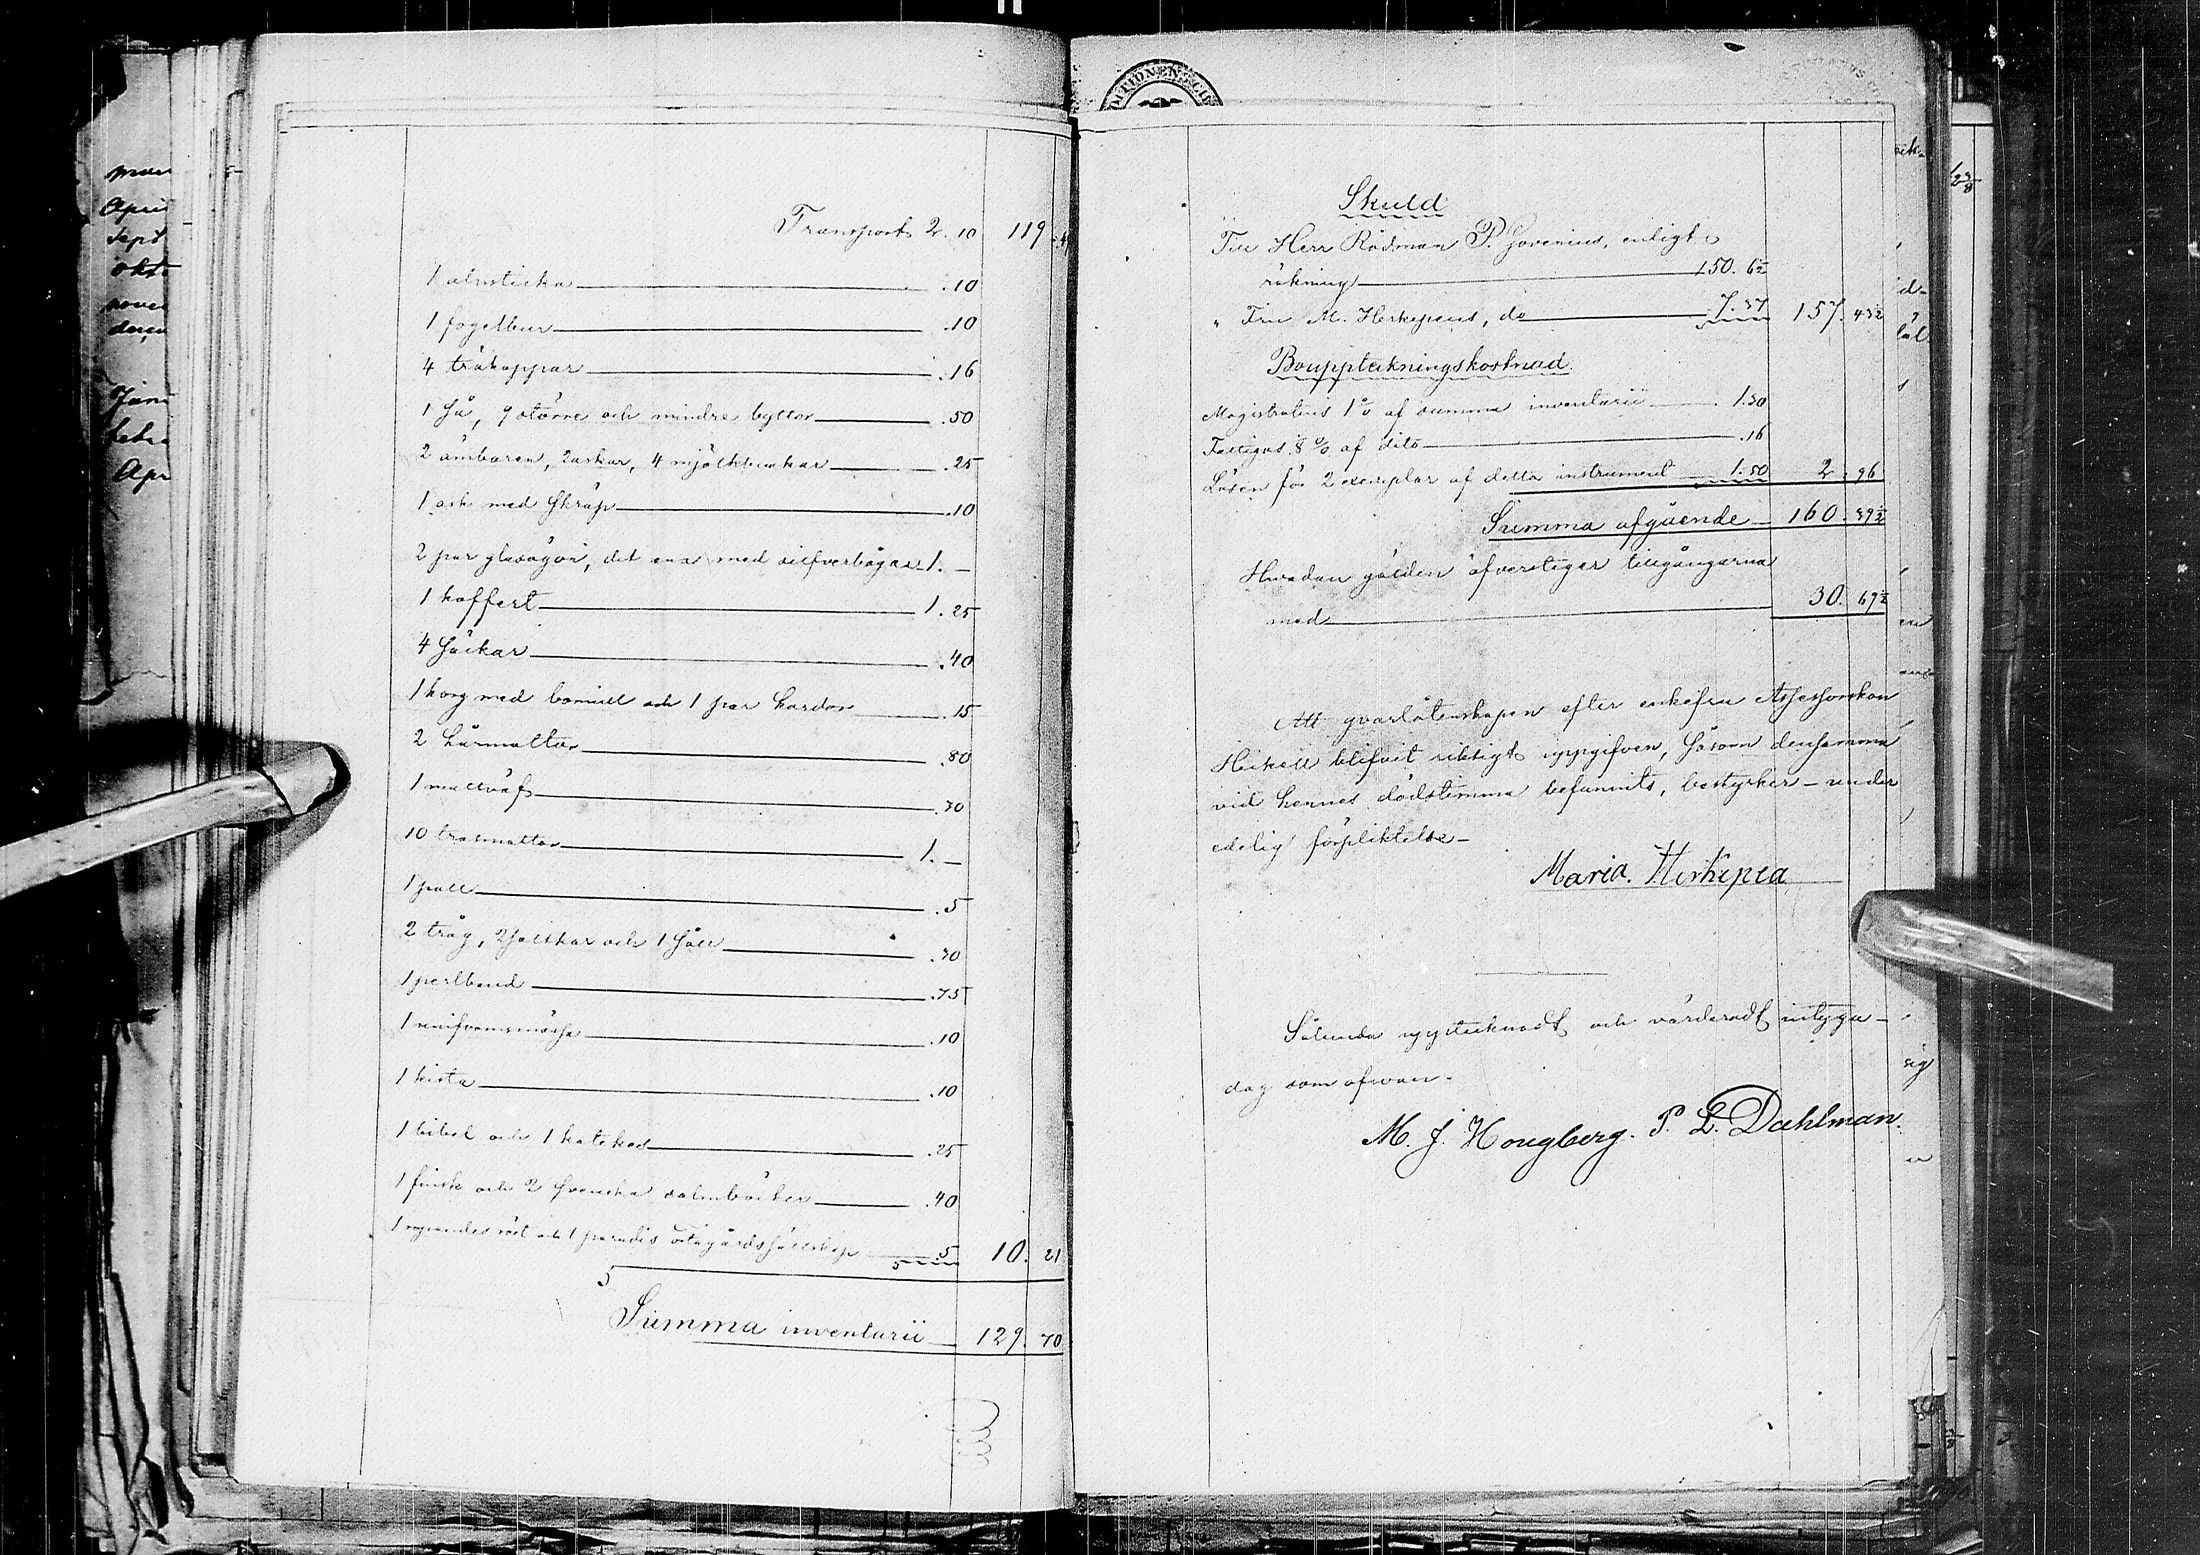 Transport 2. 10 119. 4
1 alnsticka .10
1 fogelbur .10
4 träkappar .16
1 så, 9 större och mindre byttor .50
2 ämbaren, 2 askar, 4 mjölkbunkar .25
1 ask med skräp .10
2 par glasögon, det ena med silfverbågar 1. –
1 koffert 1. 25
4 säckar .40
1 korg med bomull och 1 par kardor .15
2 hårmattor .80
1 mattväf .30
10 trasmattor 1. –
1 pall .5
2 tråg, 2 och 1 såll .30
1 perlband .75
1 uniformsmössa .10
1 kista .10
1 bibel och 1 katekes .25
1 finsk och 2 svenska salmböcker .40
1 ropandes röst och 1 paradis 5 10. 21
Summa inventarii 129. 70
Skuld
Till Herr Rådman P. Govenius, enligt
räkning 150. 6½
" Fru M. Herkepeus, do 7. 37 157. 43½
Bouppteckningskostnad.
Magistratens 1 % af summa inventarii 1. 30
Fattigas ⅛ % af dito .16
Lösen för 2 exemplar af detta instrument 1. 50 2. 96
Summa afgående 160. 39½
Hvadan gälden öfverstiger tillgångarna
med 30. 69½
Att qvarlåtenskapen efter enkefru Assessorskan
Heikell blifvit riktigt uppgifven, såsom densamma
vid hennes dödstimma befunnits, bestyrker – under
edelig förpliktelse –
Maria. Herkepea
Sålunda uppteknadt och värderadt intyga –
dag som ofvan.
M. J. Hougberg. P. L. Dahlman.